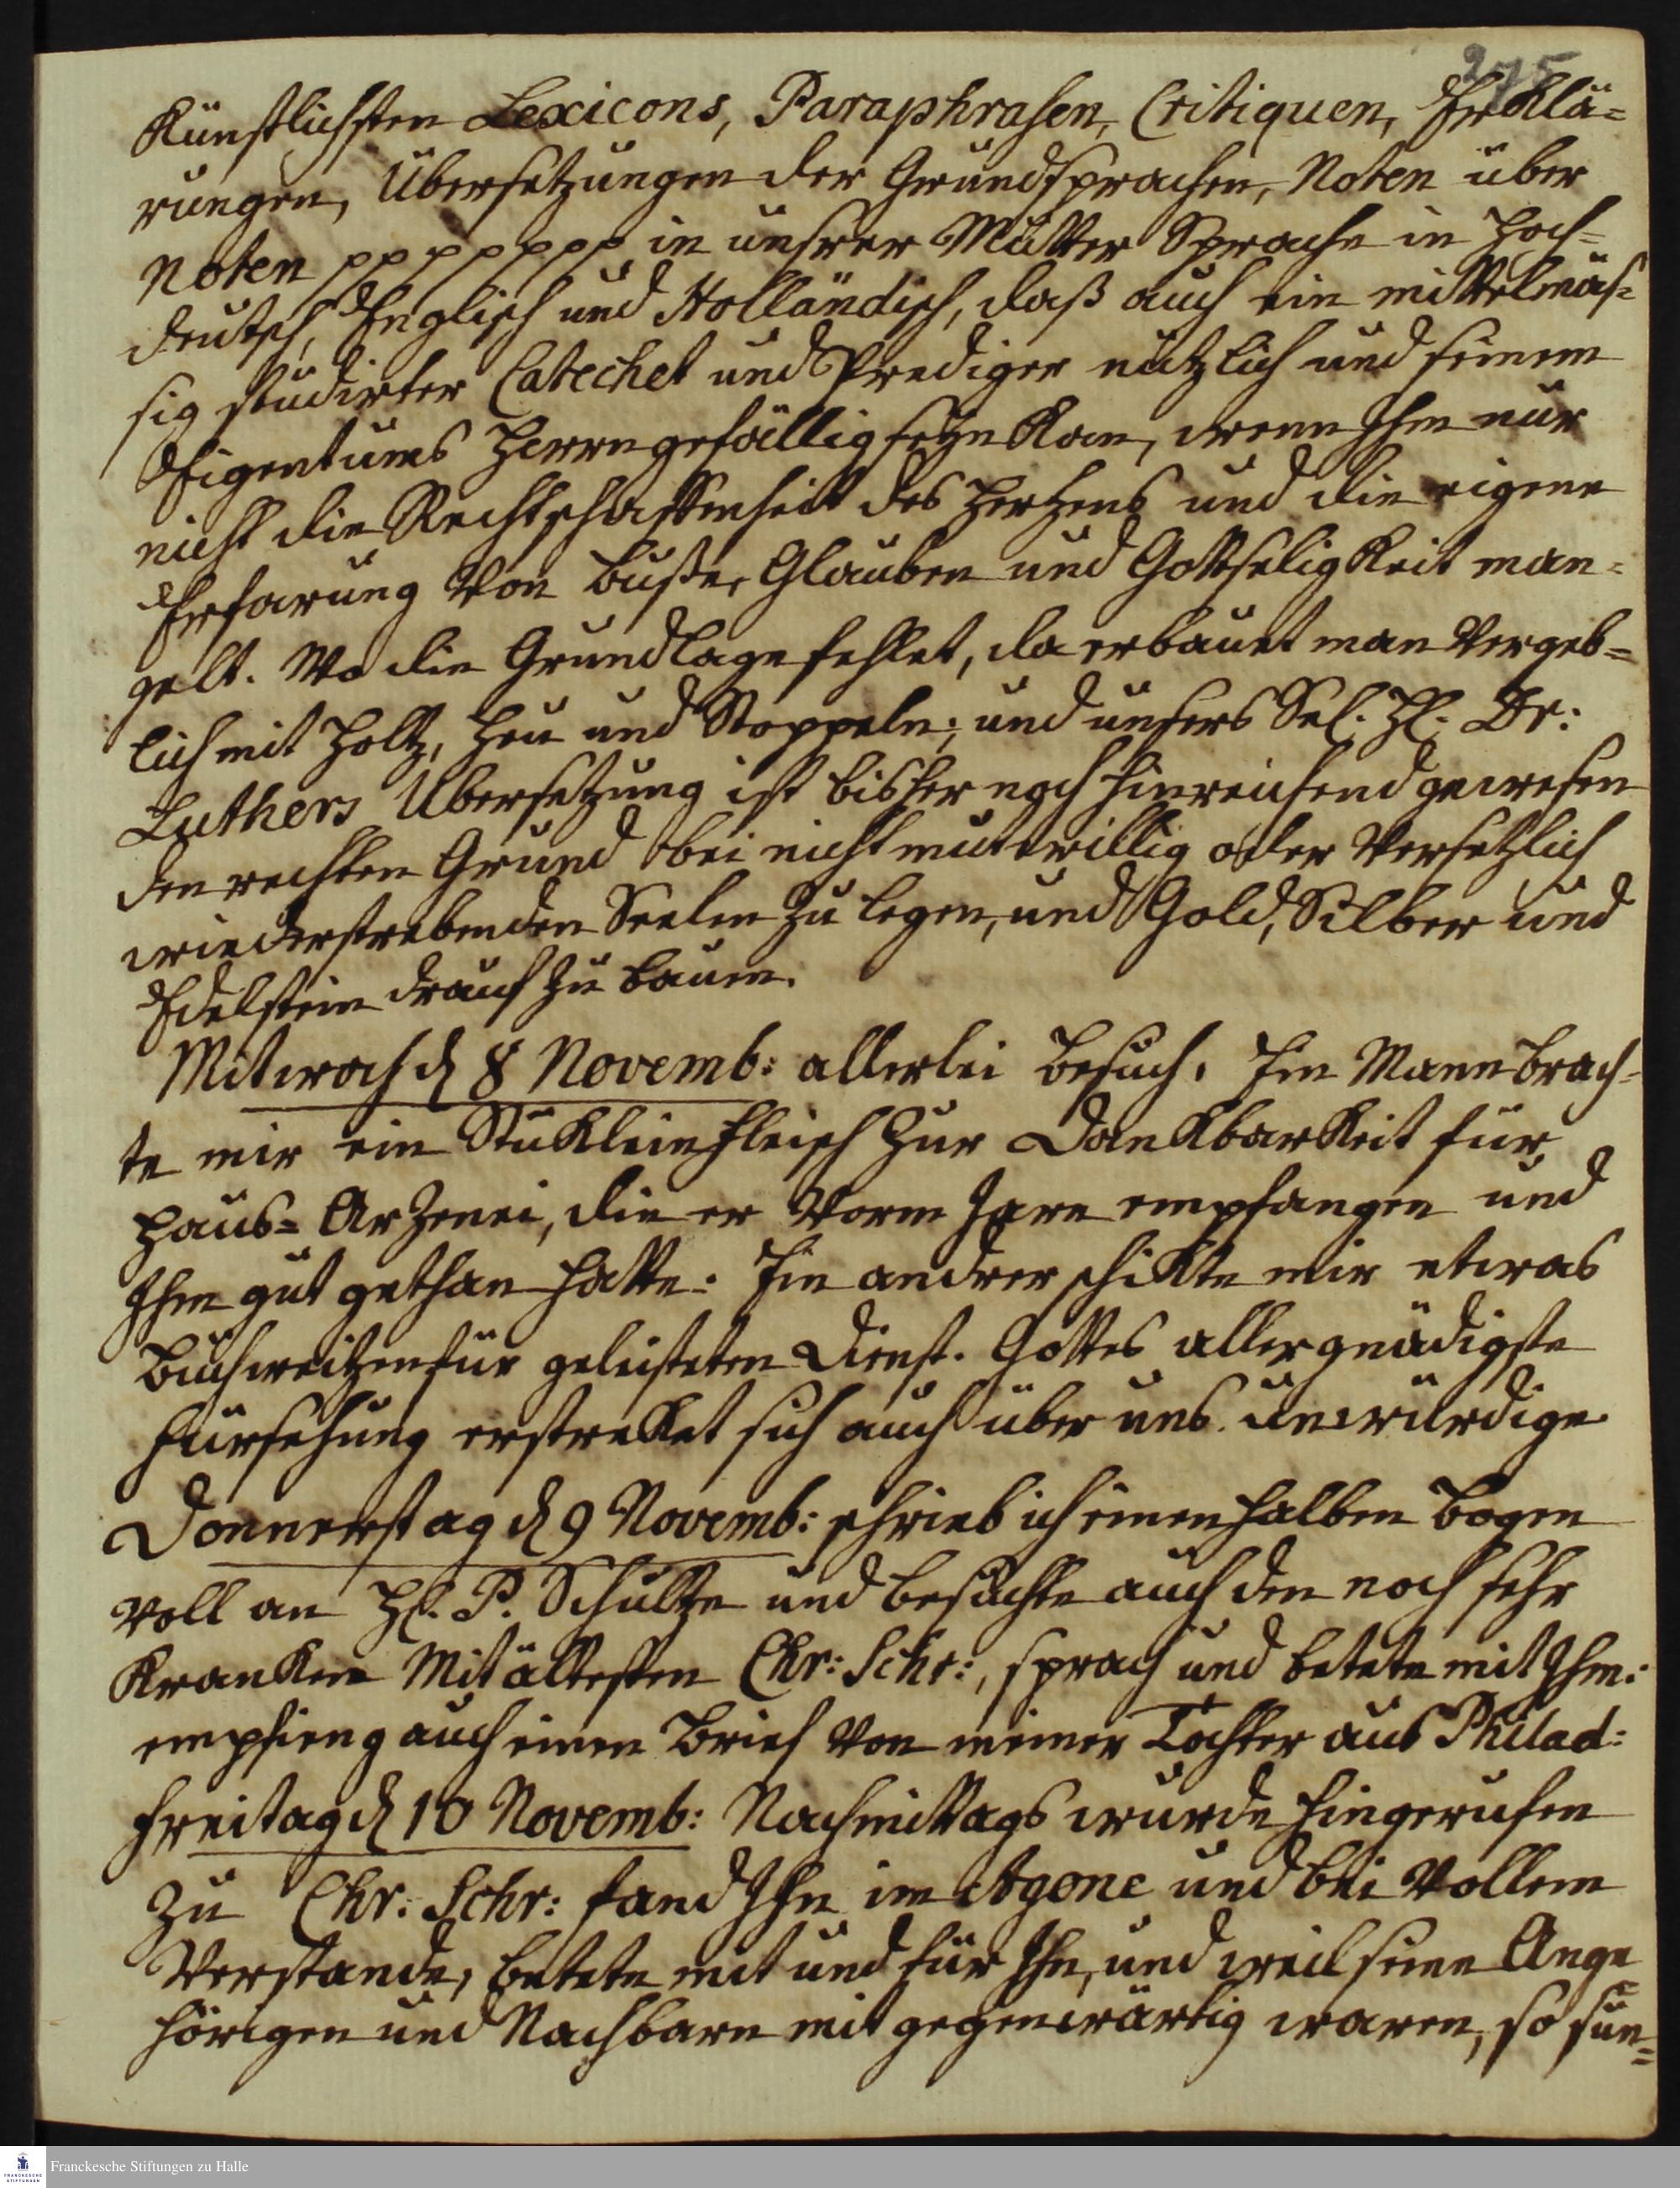 275
Künstlichsten Lexicons, Paraphrasen, Critiquen, Erklä=
rungen, Übersetzungen der Grundsprachen, Noten über
Noten pppppppp in unsrer Mutter Sprache in Hoch=
deutsch, Englisch und Holländisch, daß auch ein mittelmäs=
sig studirter Catechet und Prediger nützlich und seinem
Eigentums Herrn gefällig seyn Kan, wenn Ihm nur
nicht die Rechtschaffenheit des Hertzens und die eigene
Erfarung von Buße, Glauben und Gottseligkeit man=
gelt. Wo die Grundlage fehlet, da erbauet man vergeb=
lich mit Holtz, Heu und Stoppeln; und unsers Sel. H. Dr:
Luthers Übersetzung ist bisher noch hinreichend gewesen
den rechten Grund bei nicht mutwillig oder versetzlich
wiederstrebenden Seelen zu legen, und Gold, Silber und
Edelstein drauf zu bauen.
Mitwoch d 8 Novemb: allerlei Besuch. Ein Mann brach=
te mir ein Stüklein Fleisch zur Dankbarkeit für
Haus=Arzenei, die er vorm Jare empfangen und
Ihm gut gethan hatte. Ein andrer schikte mir etwas
Buchweitzen für geleisteten Dienst. Gottes allergnädigste
Fürsehung erstrekket sich auch über uns unwürdige
Donnerstag d 9 Novemb: schrieb ich einen halben Bogen
voll an H. P. Schultze und besuchte auch den noch sehr
Kranken Mitältesten Chr: Schr:, sprach und betete mit Ihm:
empfieng auch einen Brief von meiner Tochter aus Philad:
Freitag d 10 Novemb: Nachmittags wurde hingerufen
zu Chr: Schr: fand Ihn im Agone und bei vollem
Verstande, betete mit und für Ihn, und weil seine Ange
hörigen und Nachbarn mit gegenwärtig waren, so sun=
Franckesche Stiftungen zu Halle
FRANCKESCHE
STIFTUNGEN